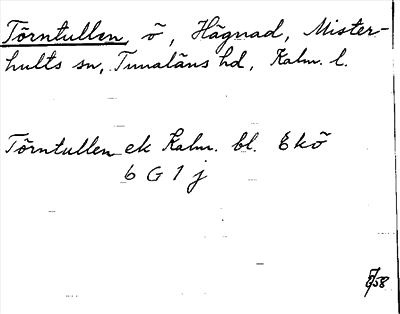 Törntullen, ö, Hägnad, Mister-
hults sn, Tunaläns hd, Kalm. l.
Törntullen ek Kalm. bl. Ekö
6 G 1 j